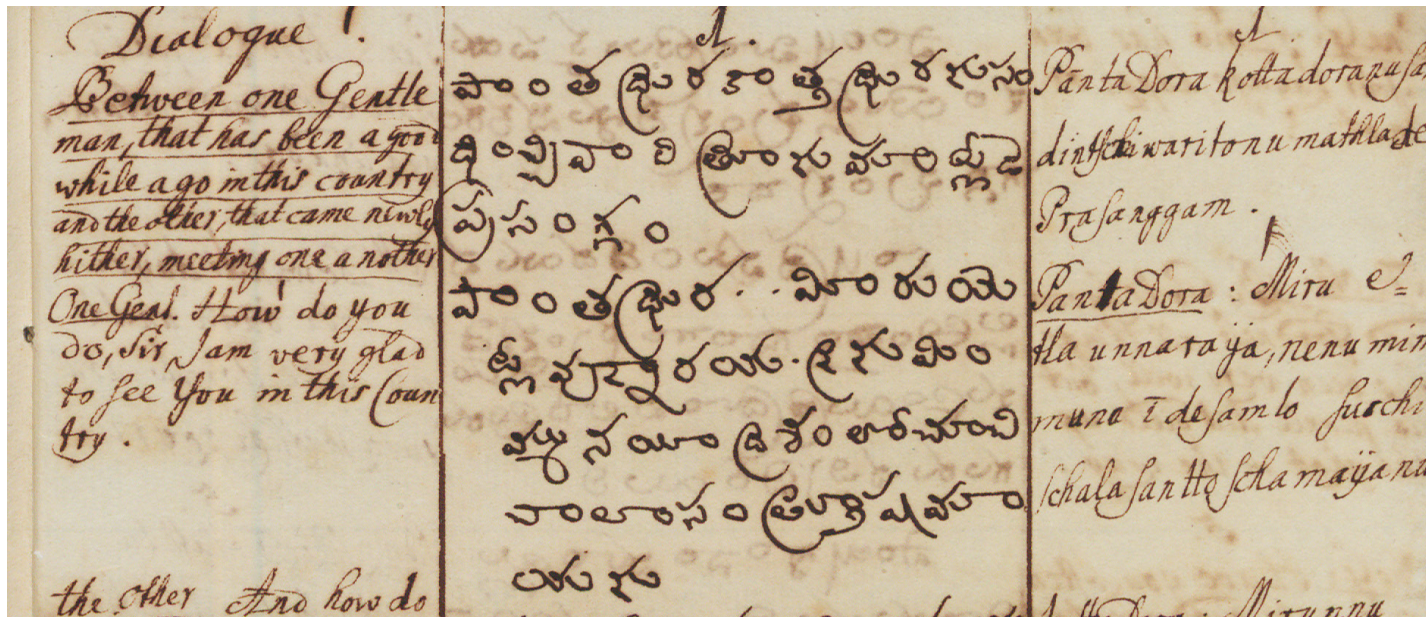 Dialogue 1.
Between one Gentle
man, that has been a good
while ago in this country
and the other, that came newly
hither, meeting one another
One Gent. How do you
do, Sir, Jam very glad
to see You in this Coun
try.
the other And how do
1.
పాంత దొర కొత్త దొరనుసం
ప్రసంగ్గం
పాంత దొర . . మీరు యె
ట్ల వున్నారయ . నేను మి
మ్మున యీ దేశంలో చూచి
చాలా సంతోషమా
యను
1.
Panta Dora kottadoranusa
dintschi waritonu mathlade
Prasanggam.
Panta Dora : Miru e=
tla unnaraija, nenu min
muna ī desamlo surchi
schala santtoschamaijanu
Mirunnu